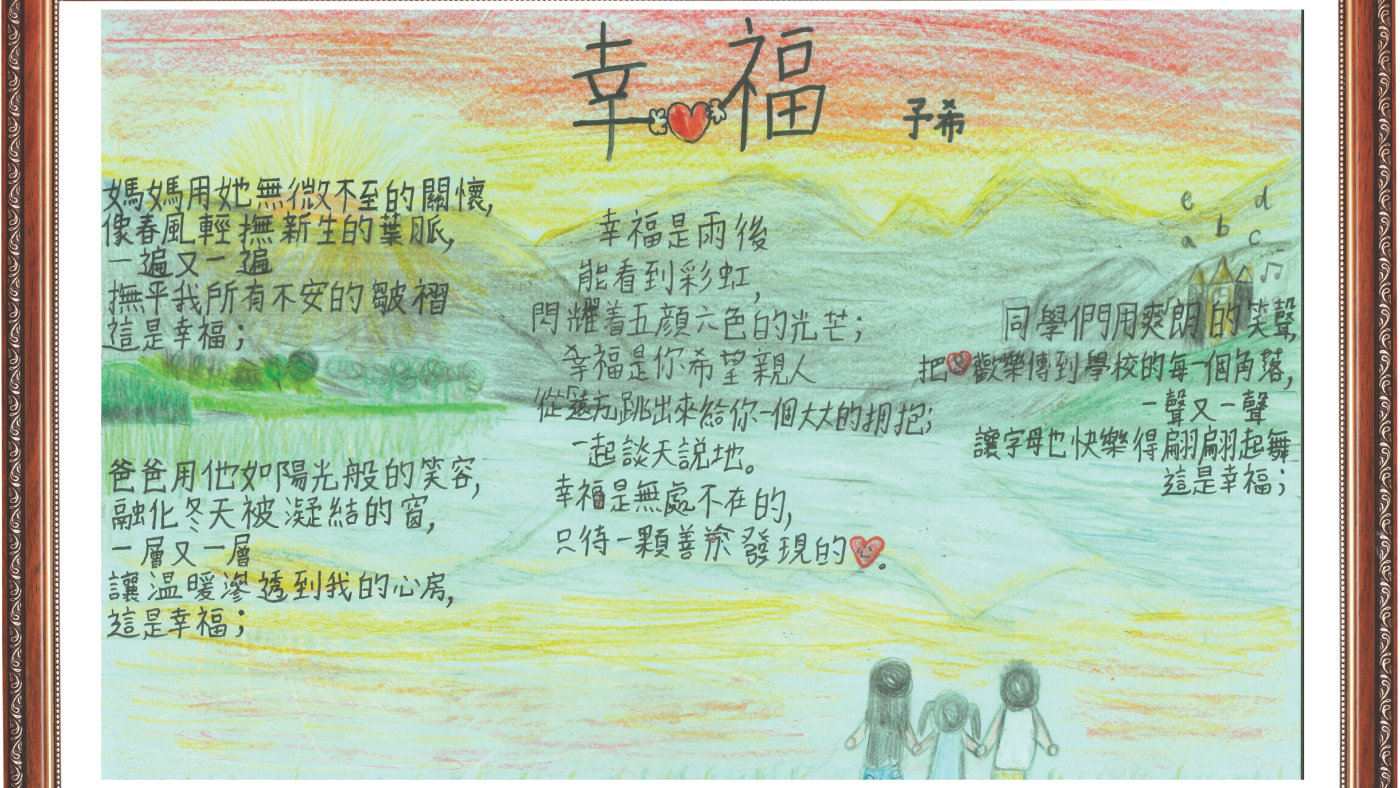 幸福
予希
媽媽用她無微不至的關懷,
像春風輕撫新生的葉脈,
一遍又一遍
撫平我所有不安的皺褶
這是幸福；
爸爸用他如陽光般的笑容,
融化冬天被凝結的窗,
一層又一層
讓溫暖滲透到我的心房,
這是幸福；
e d
b
a c
同學們用爽朗的笑聲,
把歡樂傳到學校的每一個角落,
一聲又一聲
讓字母也快樂得翩翩起舞
這是幸福；
幸福是雨後
能看到彩虹,
閃耀着五顏六色的光芒；
幸福是你希望親人
從遠方跳出來給你一個大大的擁抱；
一起談天說地。
幸福是無處不在的,
只待一顆善於發現的心。